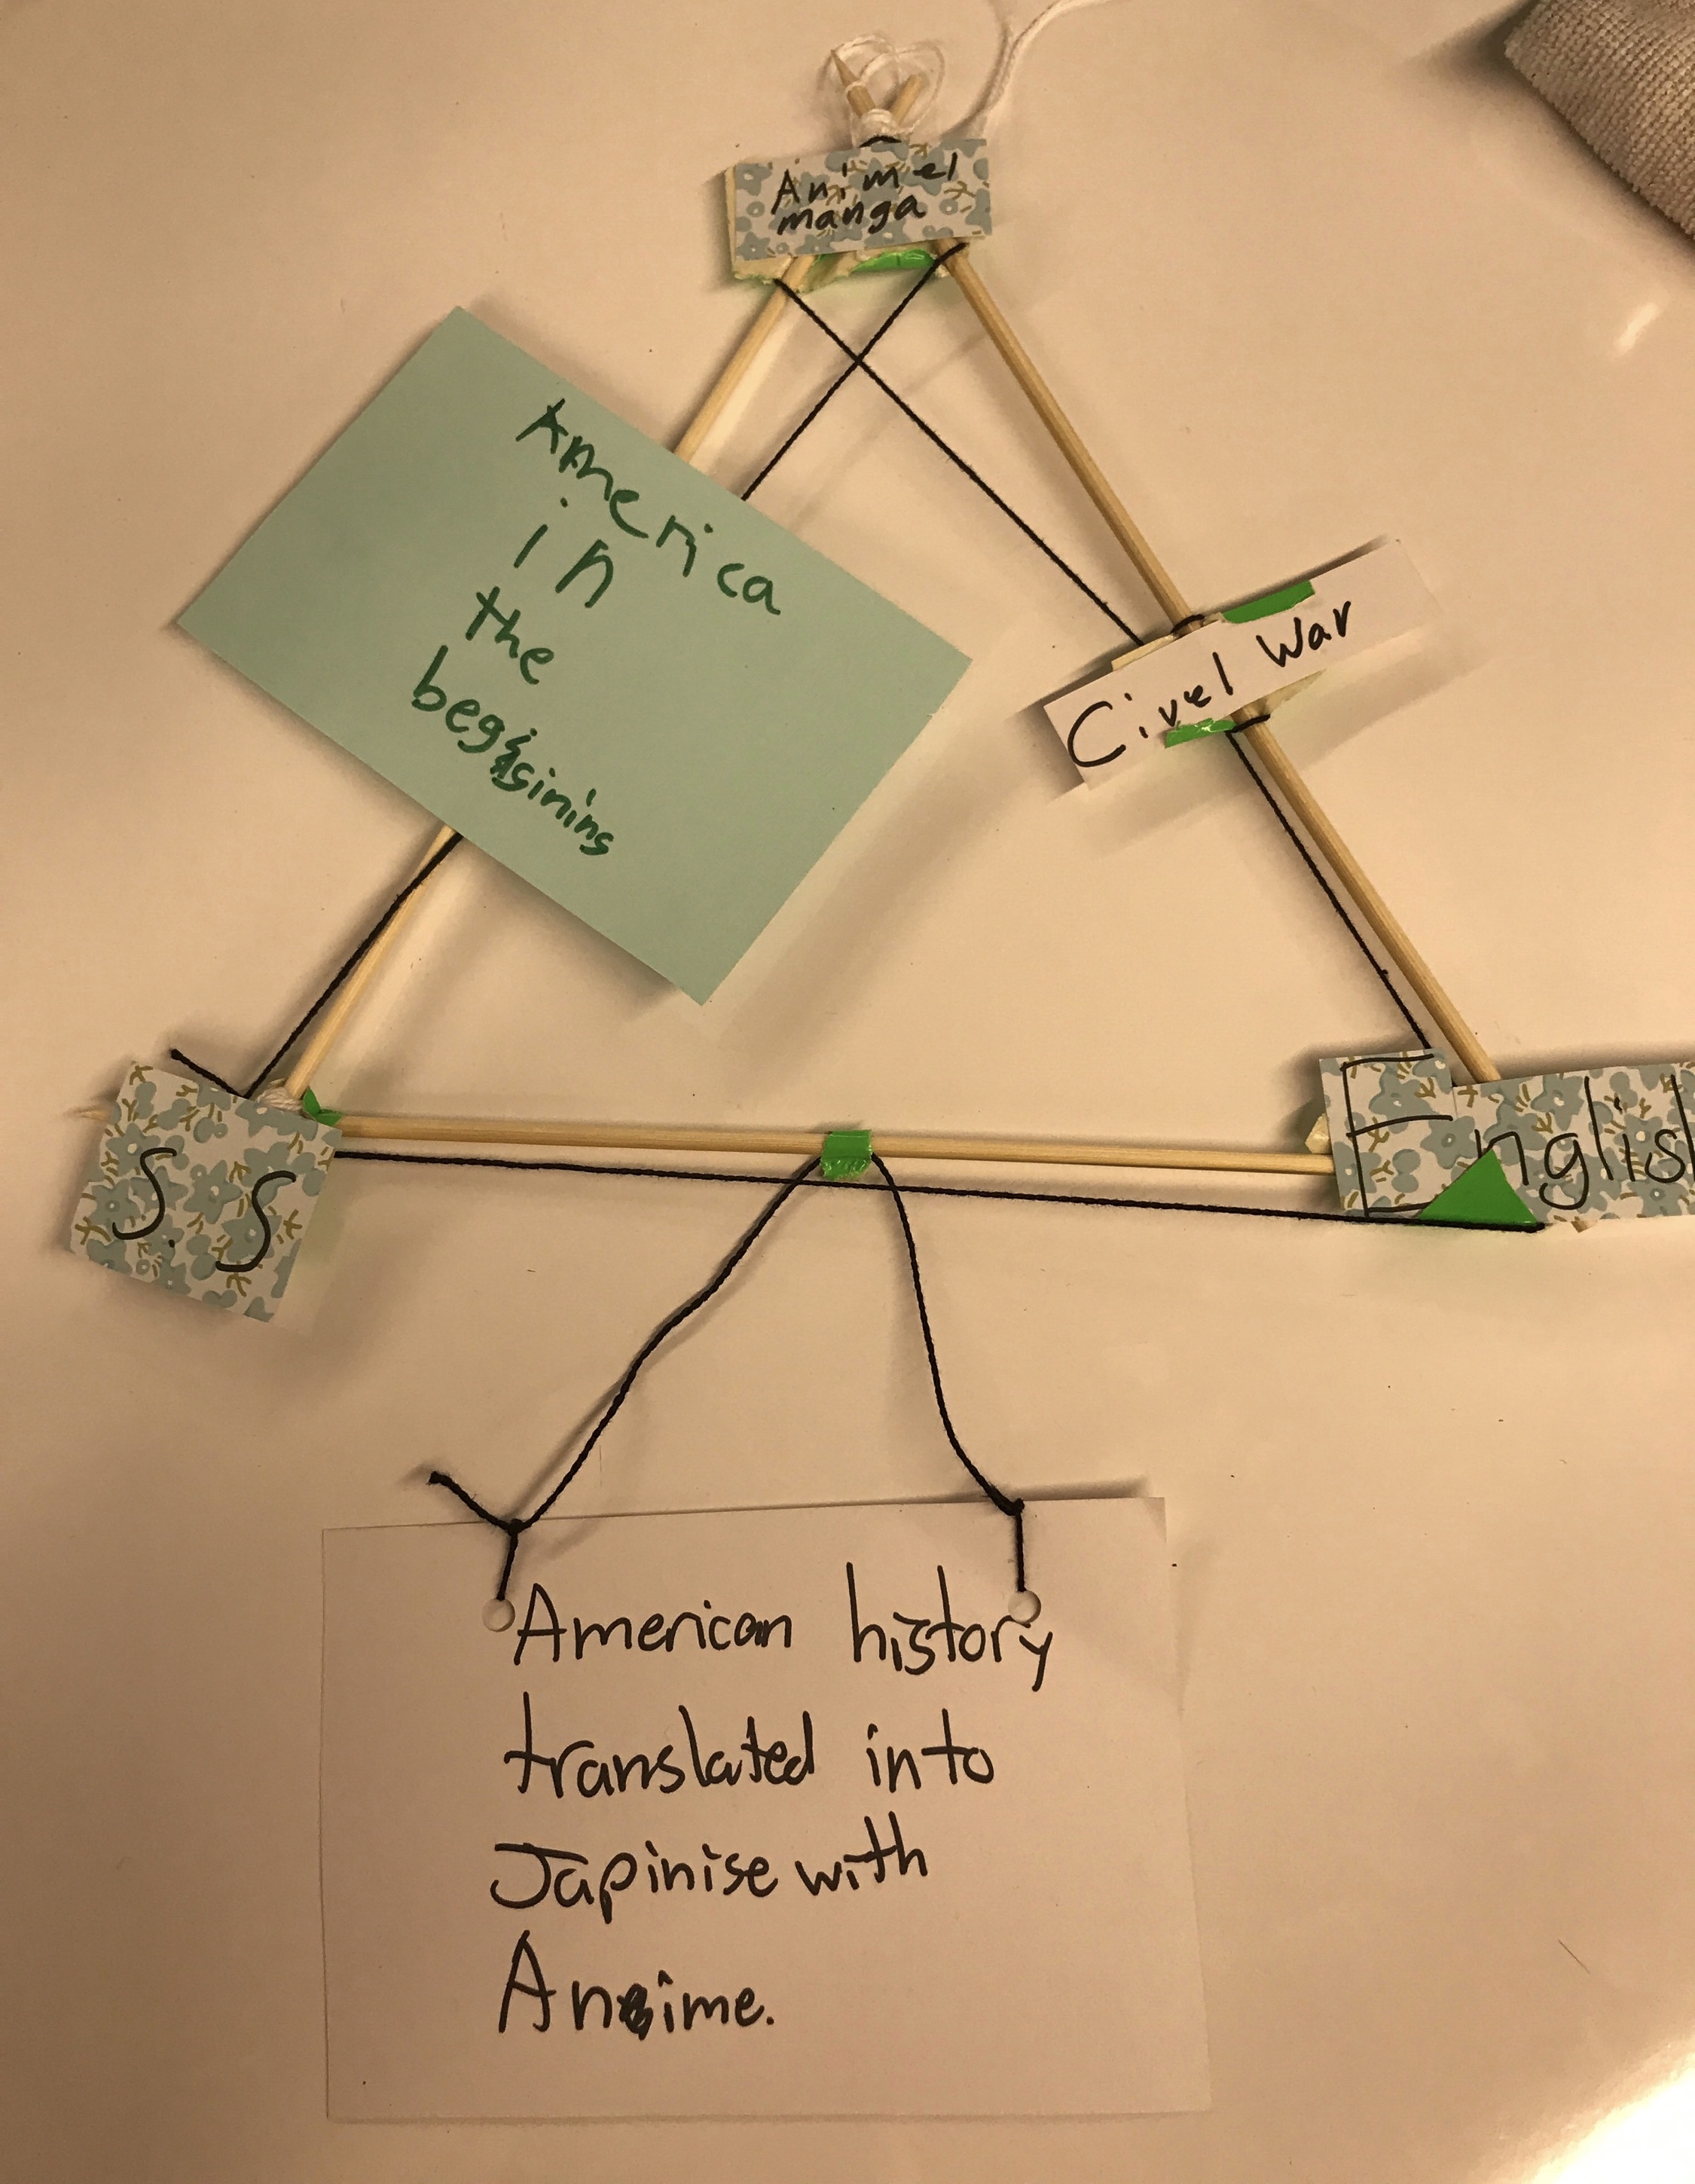 Anime/
manga
America
in
the
Civel War
S.S
Englis
American history
translated into
Japinise with
Anime.